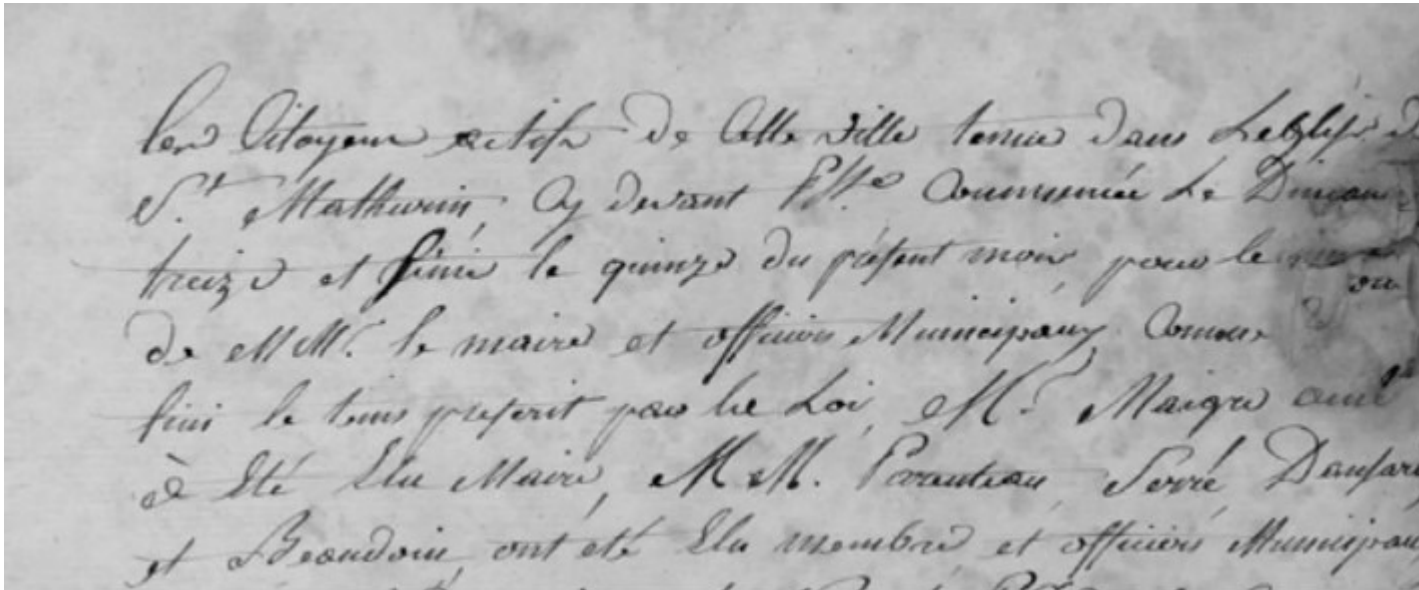 les Citoyens actifs de Cette ville tenue dans Leglise de
S.t Mathurin, Cy devant P.sse Commencée Le Diman
treize et finie le quinze du présent mois, pour le
de MM. le maire et officiers Municipaux Comme
fini le tems prescrit par la Loi, M.r Maigre ainé
à été Elu Maire, MM. Parenteau, Serré Dansard
et Beaudoin, ont été Elu membre et officiers Municipaux